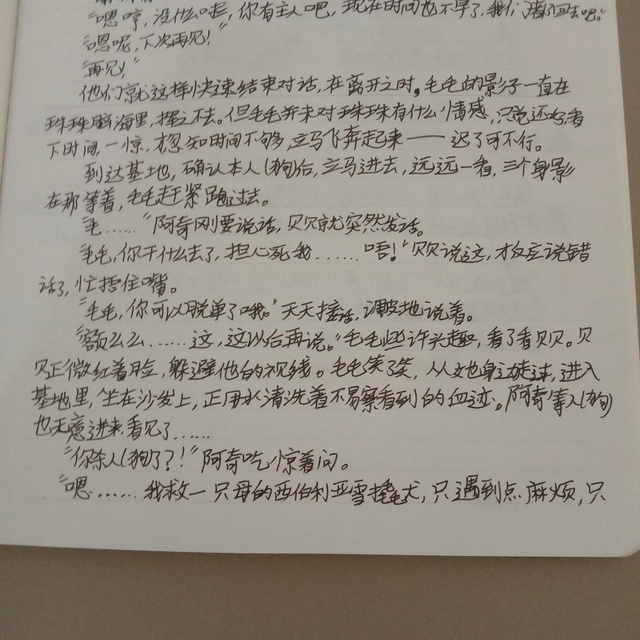 "嗯哼,没什么啦,你有主人吧,现在时间也不早了,我们 回去吧。"
"嗯呢,下次再见!"
"再见!"
他们就这样快速结束对话,在离开之时,毛毛的影子一直在
珠珠脑海里,挥之不去。但毛毛并未对珠珠有什么情感,只说还好看
下时间一惊,才知时间不够,立马飞奔起来——迟了可不行。
到达基地,确认本人(狗)后,立马进去,远远一看,三个身影
在那等着,毛毛赶紧跑过去。
"毛……"阿奇刚要说话,贝贝就突然发话。
"毛毛,你干什么去了,担心死我……唔!"贝贝说这,才反应说错
话了,忙捂住嘴。
"毛毛,你可以脱单了哦。"天天接话,调皮地说着。
"额么么……这,这以后再说。"毛毛些许头趣,看了看贝贝。贝
贝正微红着脸,躲避他的视线。毛毛笑了笑,从她身边走过,进入
基地里,坐在沙发上,正用水清洗着不易察看到的血迹。阿奇等人(狗)
也无意进来看见了……
"你杀人(狗了?!"阿奇吃惊着问。
"嗯……我救一只母的西伯利亚雪撬犬,只遇到点麻烦,只